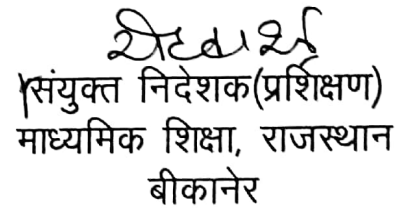 संयुक्त निदेशक(प्रर्शिक्षण)
माध्यमिक शिक्षा, राजस्थान
बीकानेर